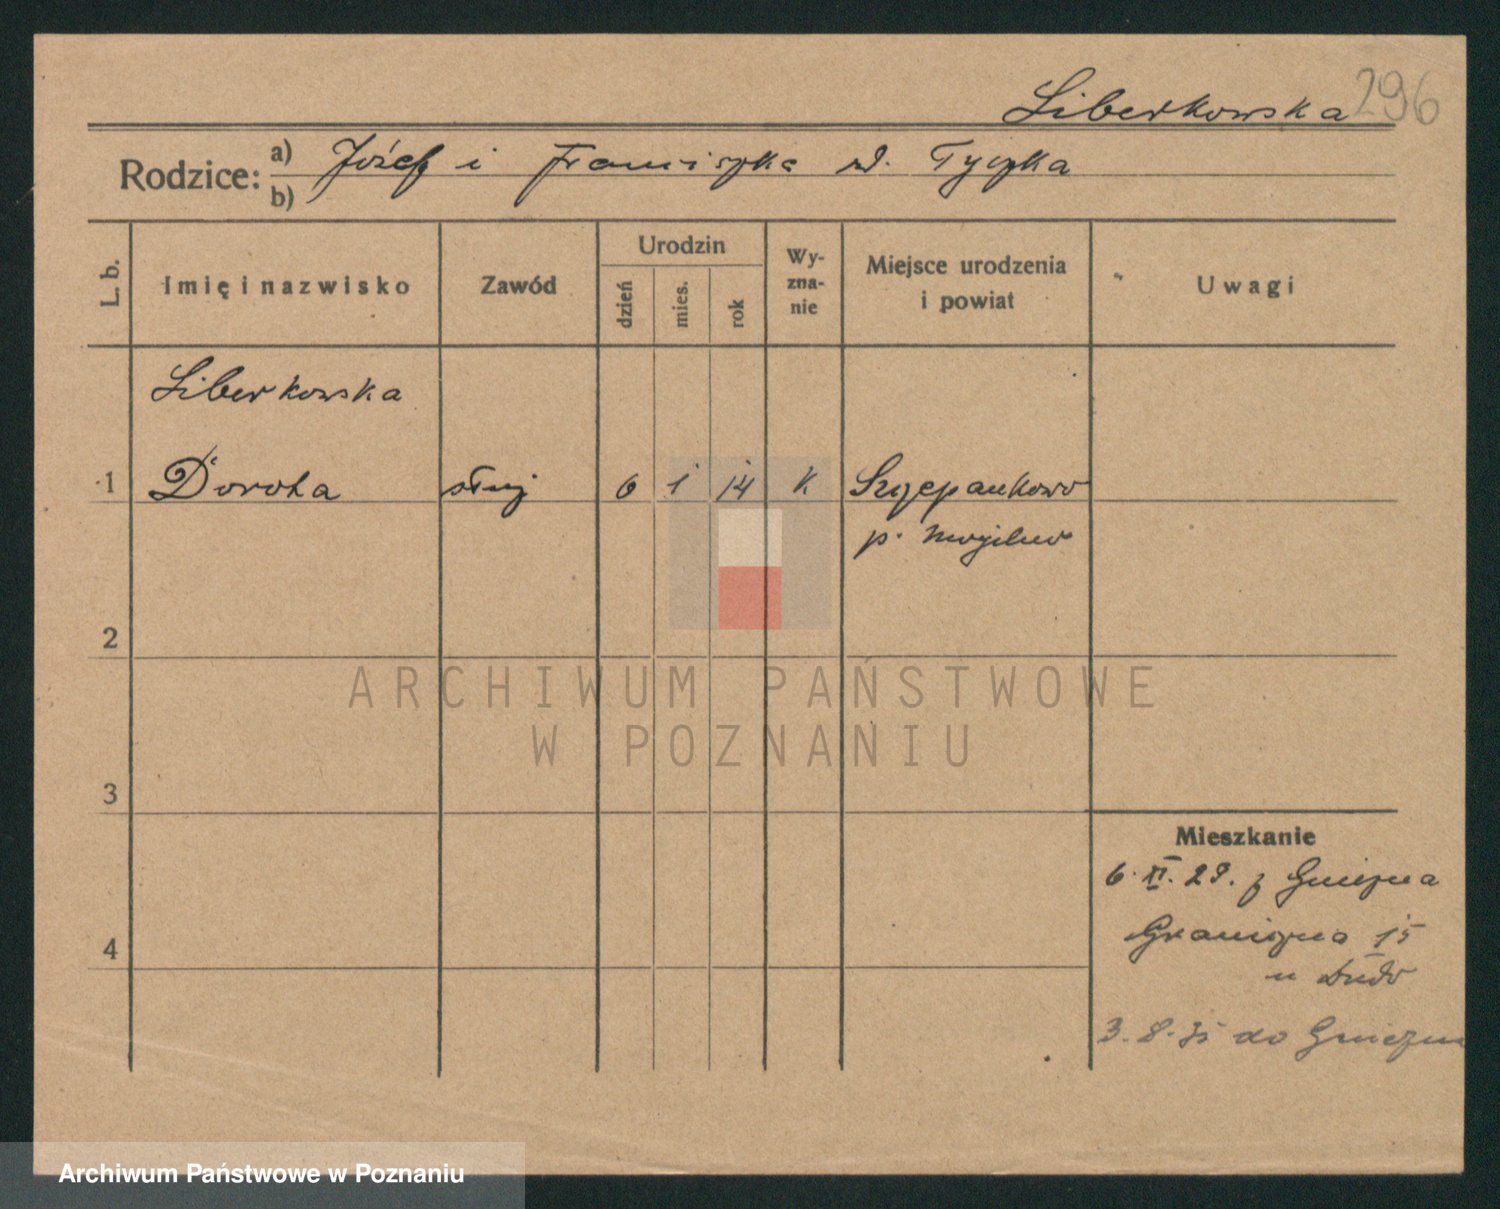 Liberkowska 296
Rodzice: a) Józef i Franciszka zd. Tyczka
b)
L. b. Imię i nazwisko Zawód Urodzin dzień mies. rok Wy-zna-nie Miejsce urodzenia i powiat Uwagi
Liberkowska
1 Dorota służ 6 1 14 K Szczepankowo
p. Mogilno
2
ARCHIWUM PAŃSTWOWE
W POZNANIU
3
Mieszkanie
6. XI. 29. z Gniezna
Graniczna 15
4
u
3. 8. 35 do Gniezna
Archiwum Państwowe w Poznaniu